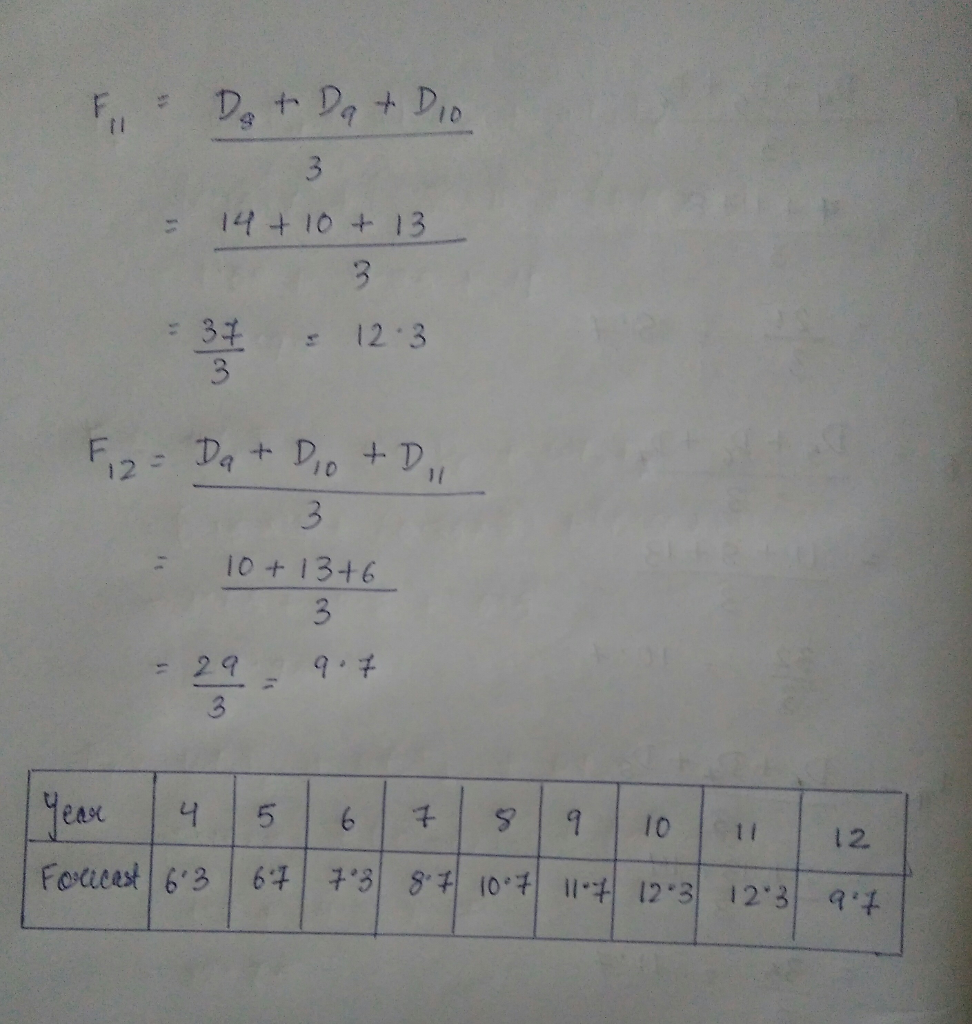 F₁₁ = D₈ + D₉ + D₁₀
3
= 14 + 10 + 13
3
= 37 = 12·3
3
F₁₂ = D₉ + D₁₀ + D₁₁
3
= 10 + 13+6
3
= 29 = 9·7
3
Year 4 5 6 7 8 9 10 11 12
Forecast 6·3 6·7 7·3 8·7 10·7 11·7 12·3 12·3 9·7